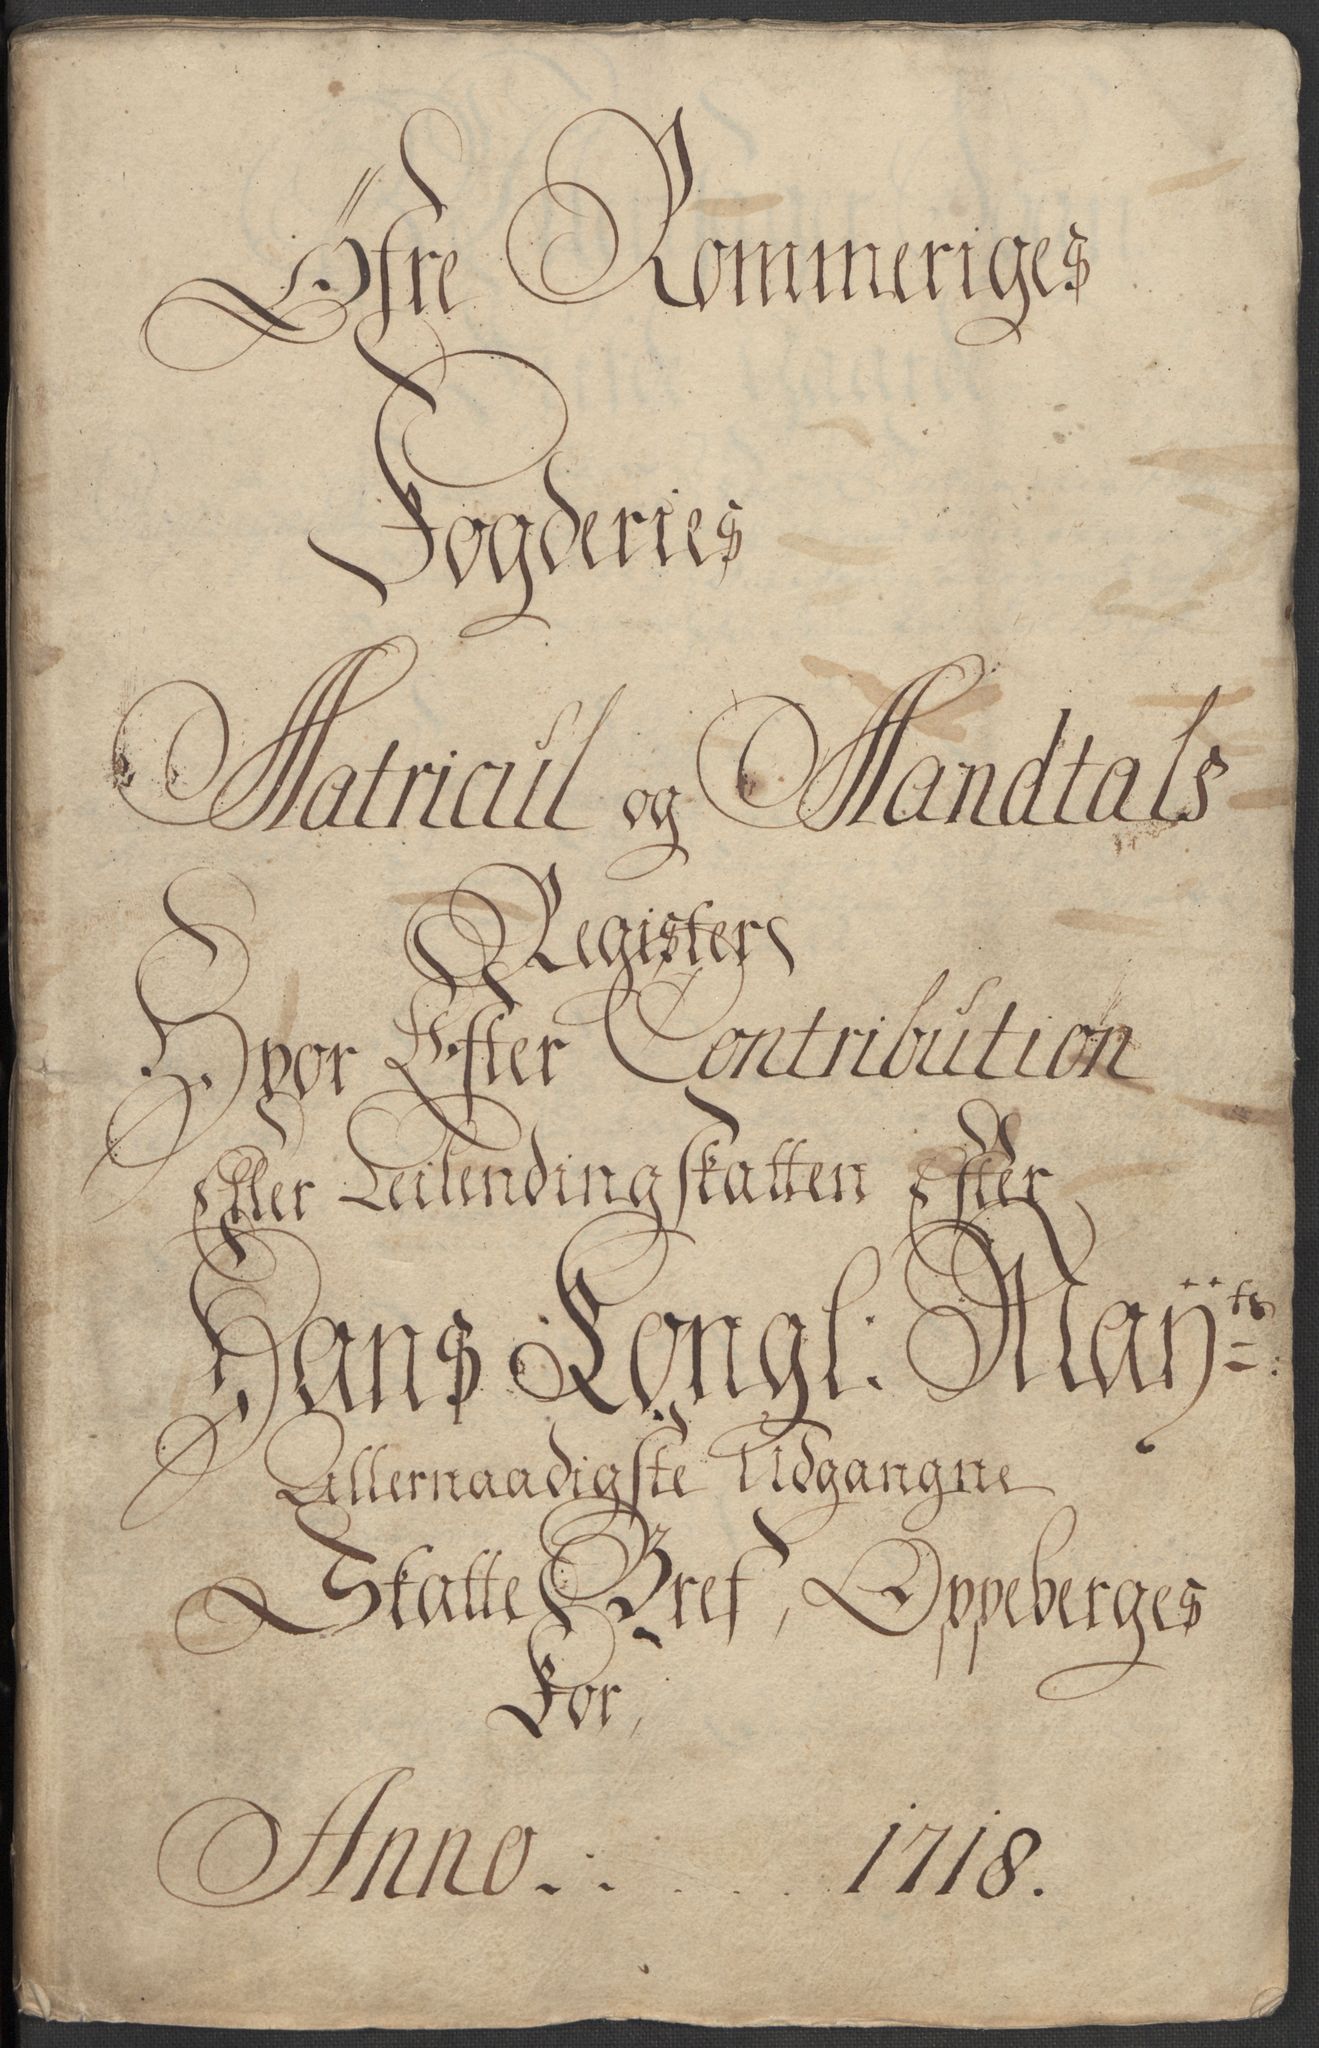 Öfre Rommeriges
Fogderies
Matricul og Mandtals
Register
Hvor Efter Contribution
Eller Leilendingskatten Efter
Hans Kongl: Mayts:
Allernaadigste Udgangne
Skatte Bref, Oppeberges
For,
Anno.. 1718.